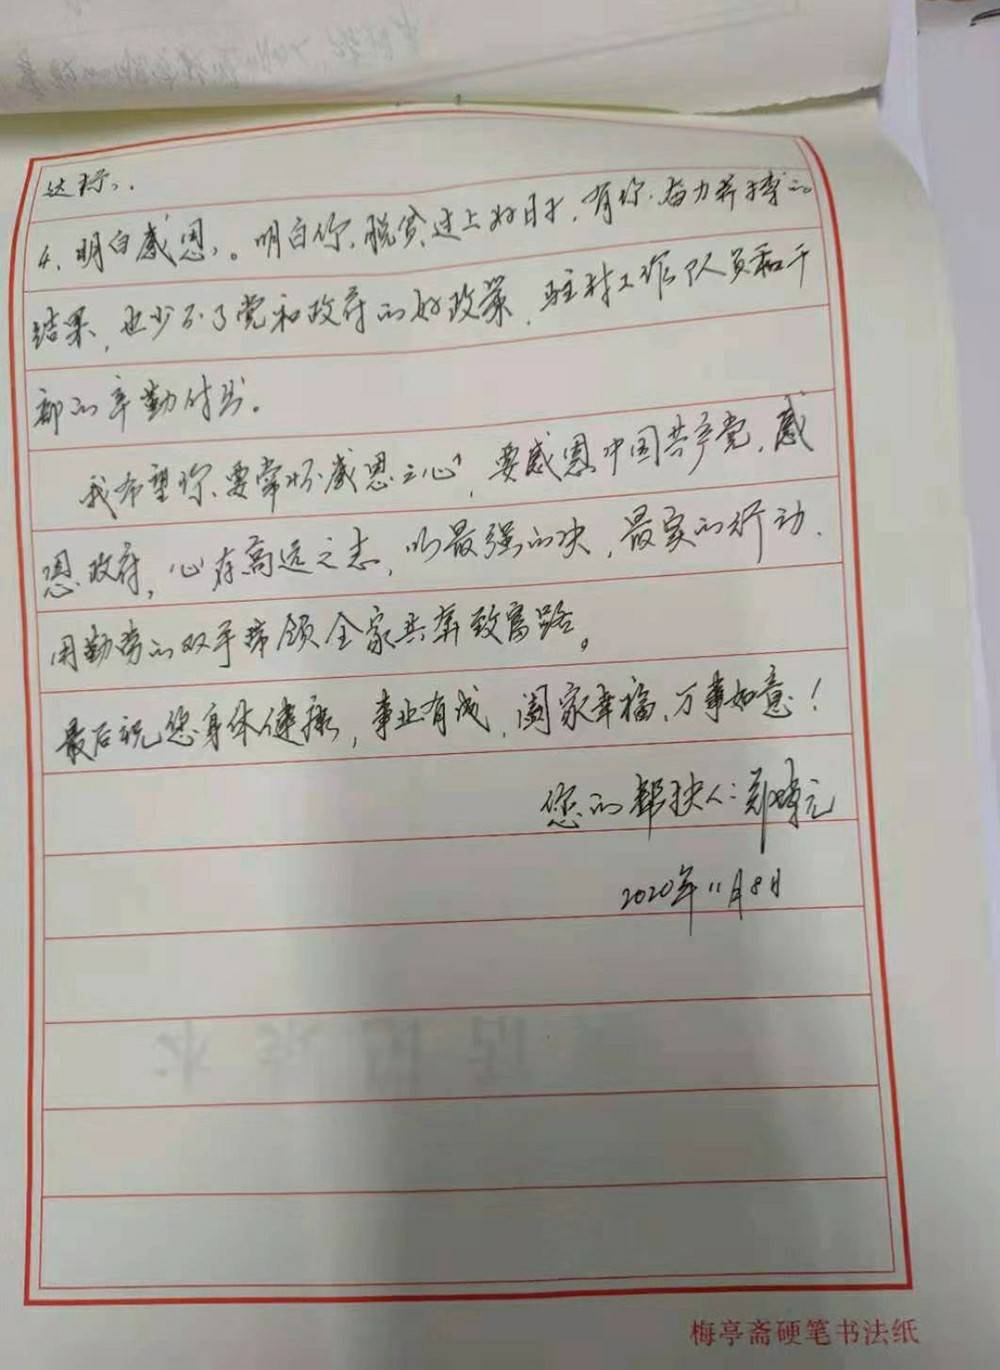 达标。
4、明白感恩。明白你脱贫过上好日子，有你奋力拼搏的
结果，也少不了党和政府的好政策，驻村工作队员和干
部的辛勤付出。
我希望你要常怀感恩之心，要感恩中国共产党，感
恩政府，心存高远之志，以最强的决，最实的行动，
用勤劳的双手带领全家共奔致富路。
最后祝您身体健康，事业有成，阖家幸福，万事如意！
您的帮扶人：郑
2020年11月8日
梅亭斋硬笔书法纸